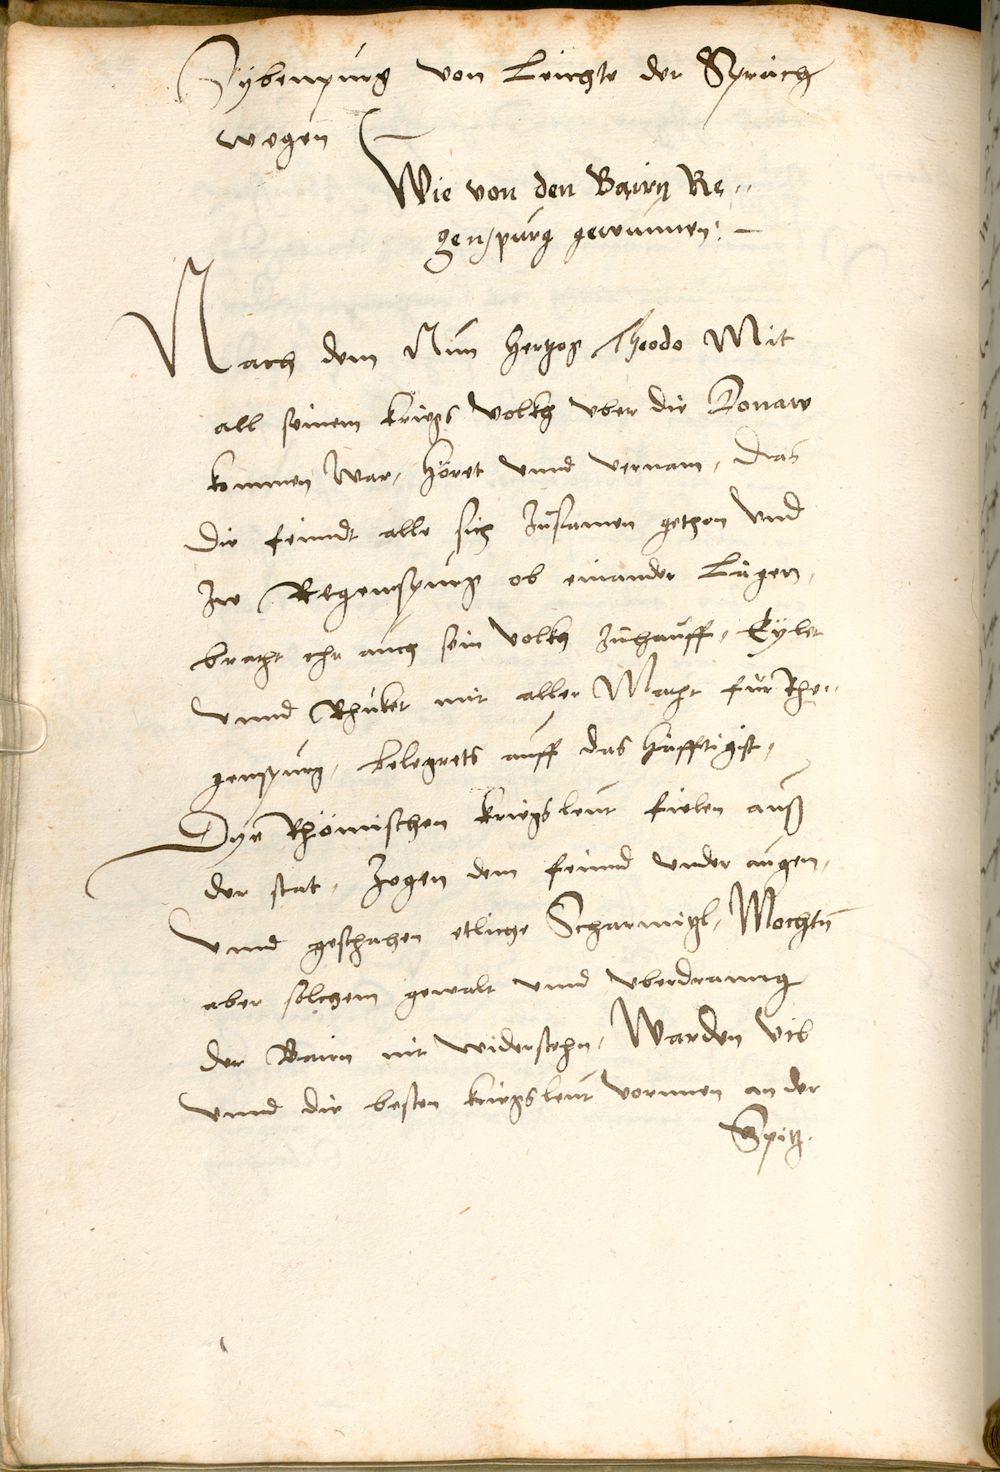 Sybenpurg von Leichte der Sprach
wegen
Wie von den Bairn Re⸗
genspurg gewunnen:
Nach dem Nun hertzog Theodo Mit
all seinem kriegs volkh vber die Donaw
kommen War, höret vnnd vernam, das
die feindt alle sich zusamen gethon vnd
zw Regenspurg ob einander Lägen,
bracht ehr auch sein volkh zuhauff, Eylet
vnnd Rhuket mit aller Macht für Rhe⸗
genspurg, belegrets auff das häfftigist,
Dye Rhömischen kriegsleut fielen auß
der stat, zogen dem feinnd vnder augen,
vnnd geschahen etliche Scharmitzl, Mochtn̄
aber solchem gewalt vnnd vberdranng
der Bairn nit widerstehn, Warden vil
vnnd die besten kriegsleut vornnen an der
Spitz.